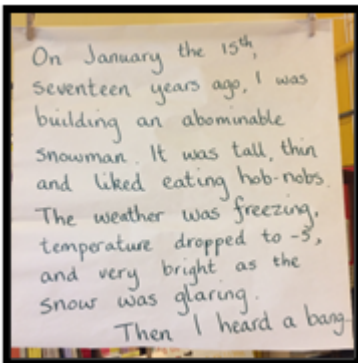 On January the 15th,
seventeen years ago, I was
building an abominable
snowman. It was tall, thin
and liked eating hob-nobs.
The weather was freezing,
temperature dropped to -5,
and very bright as the
snow was glaring.
Then I heard a bang